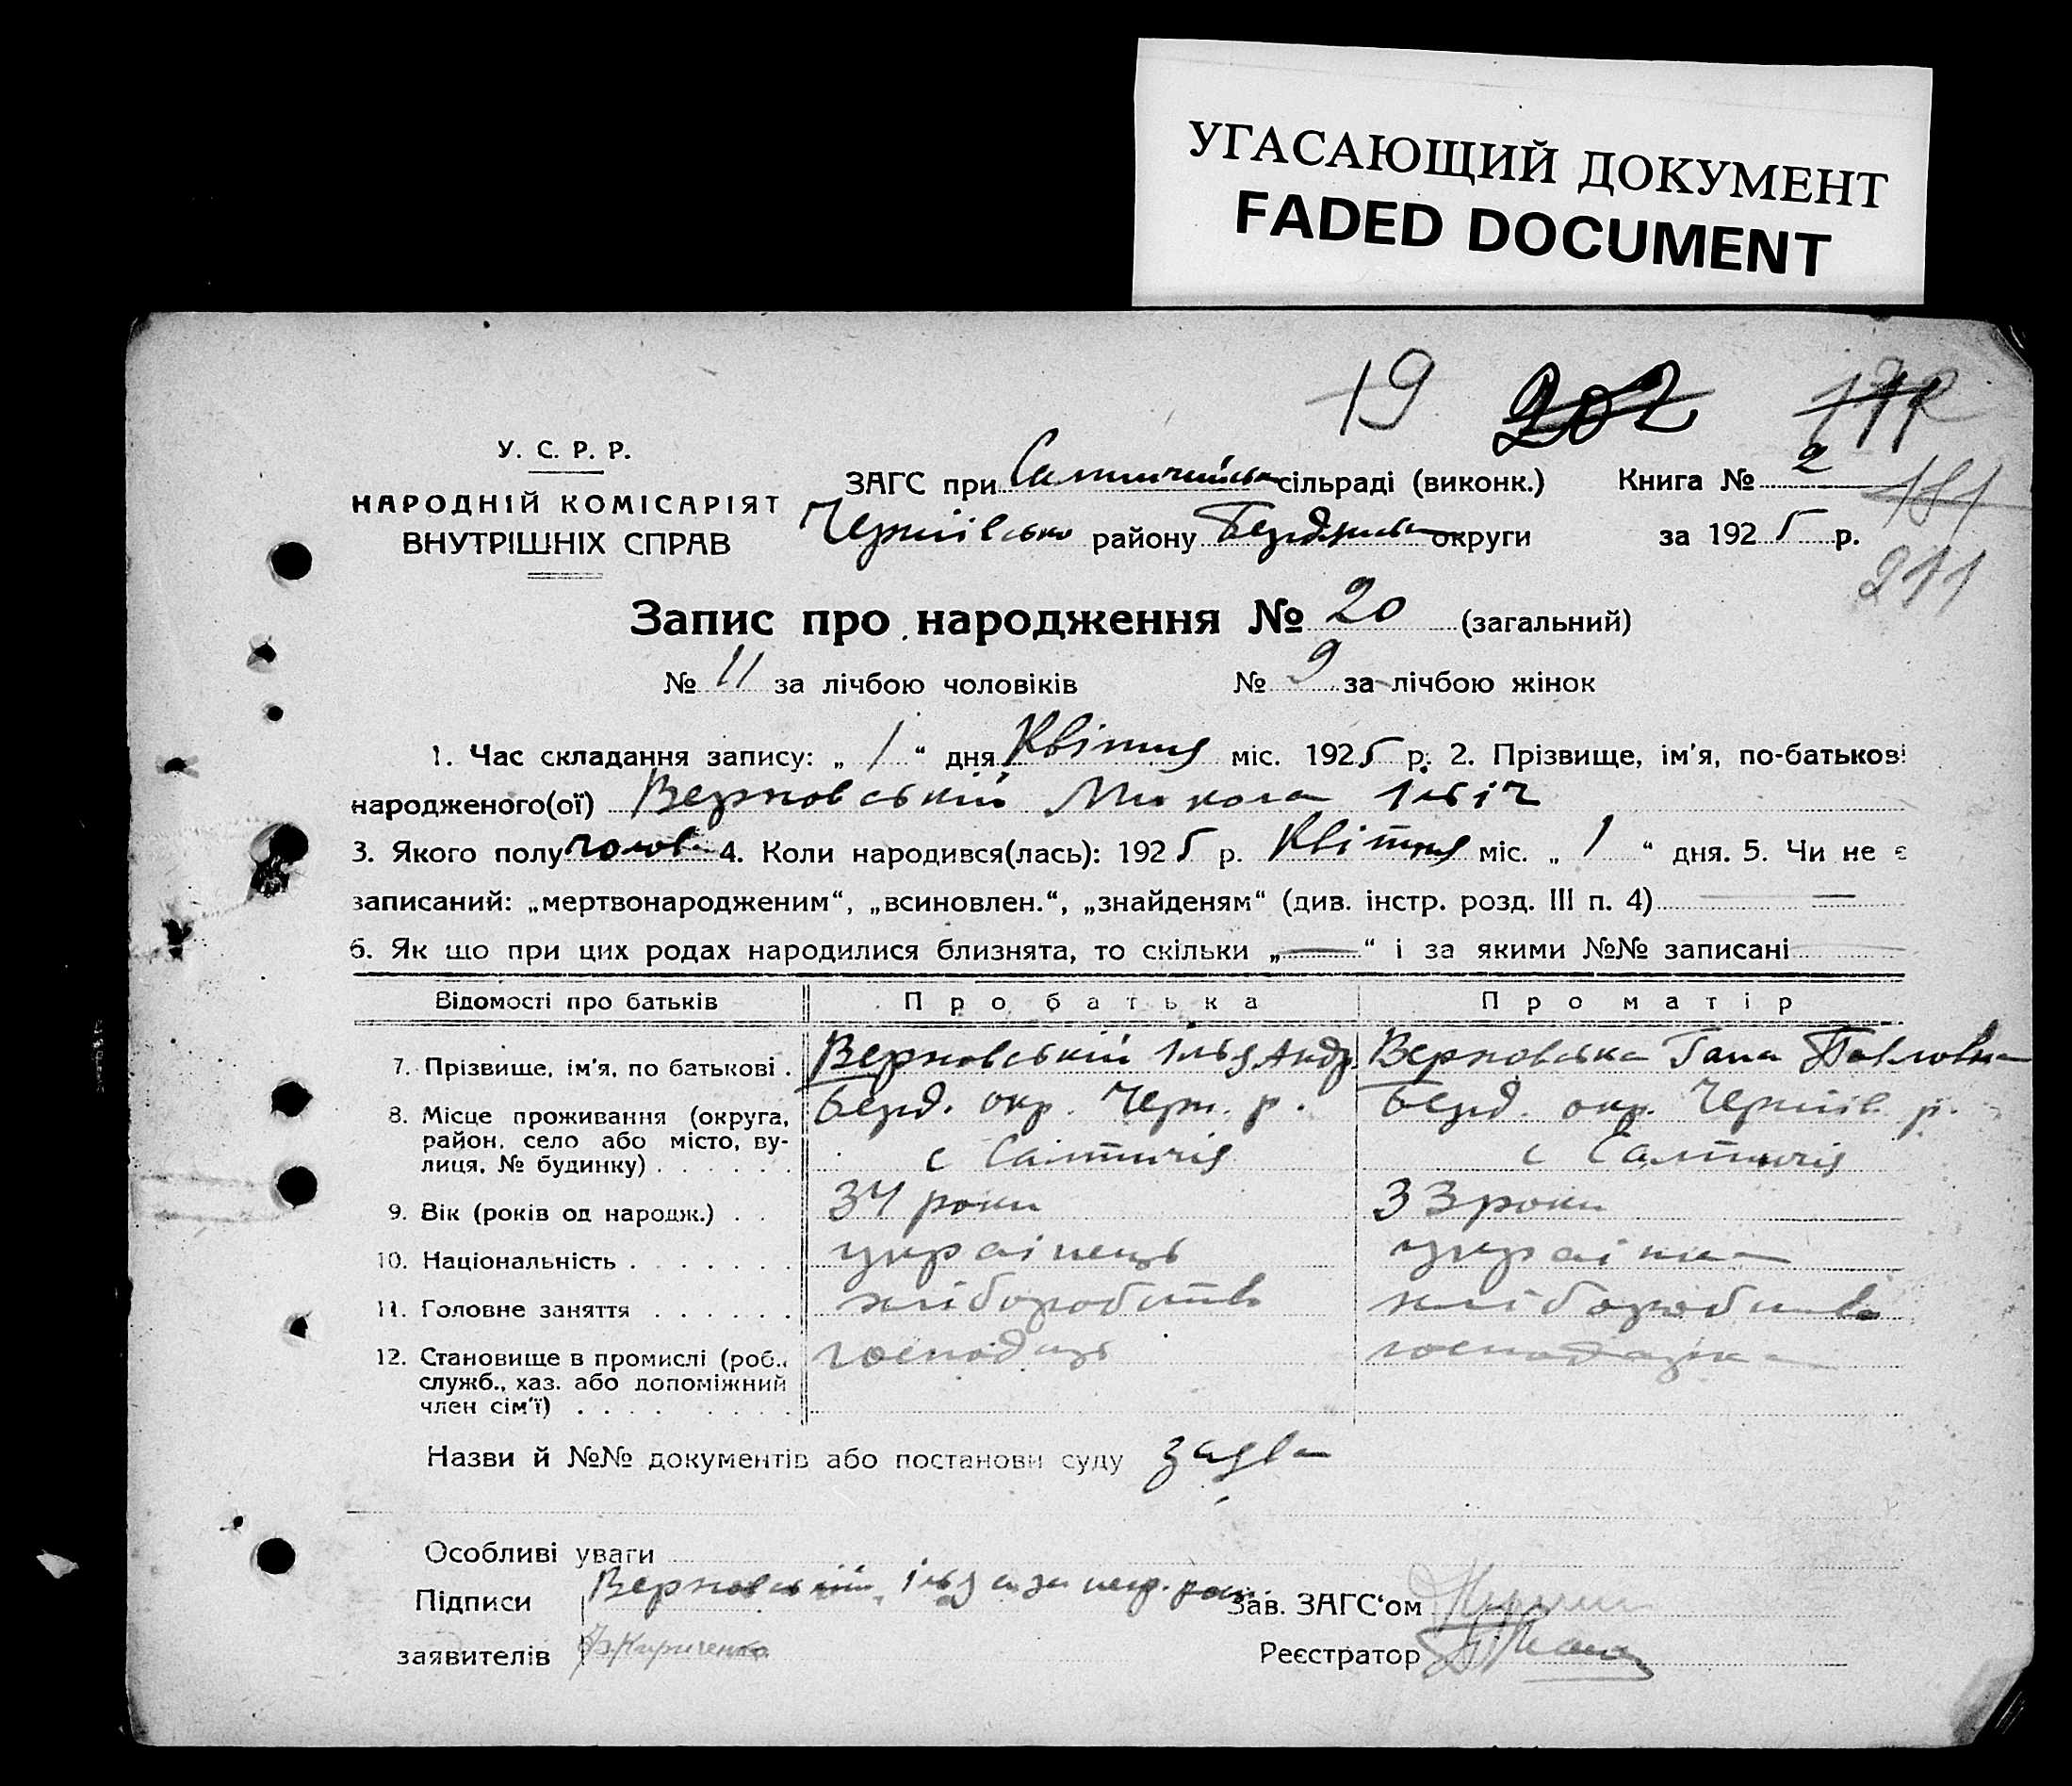 УГАСАЮЩИЙ ДОКУМЕНТ
FADED DOCUMENT
19 202
У. С. Р. Р.
НАРОДНІЙ КОМІСАРІЯТ
ВНУТРІШНІХ СПРАВ
ЗАГС при Салтичийськ сільраді (виконк.) Книга № 2
181
Чернівсько району Бердянськ округи за 1925 р.
211
Запис про народження № 20 (загальний)
№ 11 за лічбою чоловіків № 9 за лічбою жінок
1. Час складання запису: „ 1 “ дня Квітня міс. 1925 р. 2. Прізвище, ім'я, по-батькові
народженого(ої) Верновський Микола Ільіч
3. Якого полу чолов. 4. Коли народився(лась): 1925 р. Квітня міс. „ 1 “ дня. 5. Чи не є
записаний: „мертвонародженим“, „всиновлен.“, „знайденям“ (див. інстр. розд. III п. 4) —
6. Як що при цих родах народилися близнята, то скільки „—“ і за якими №№ записані
Відомості про батьків Про батька Про матір
7. Прізвище, ім'я, по батькові . Верновській Ілья Андр. Верновська Гана Павловна
8. Місце проживання (округа, район, село або місто, вулиця, № будинку) . . . . . . Берд. окр. Черн. р. Берд. окр. Чернів. р.
с Салтичія с Салтичія
9. Вік (років од народж.) . . 34 роки 33 роки
10. Національність . . . . . . . українець українка
11. Головне заняття . . . . . . хліборобство хліборобство
12. Становище в промислі (роб., служб., хаз. або допоміжний член сім'ї) . . . . . . . . господарь господарка
Назви й №№ документів або постанови суду заява
Особливі уваги
Підписи Верновський Ілья а за негр. рос. Зав. ЗАГС‘ом
заявителів Кириченко Реєстратор